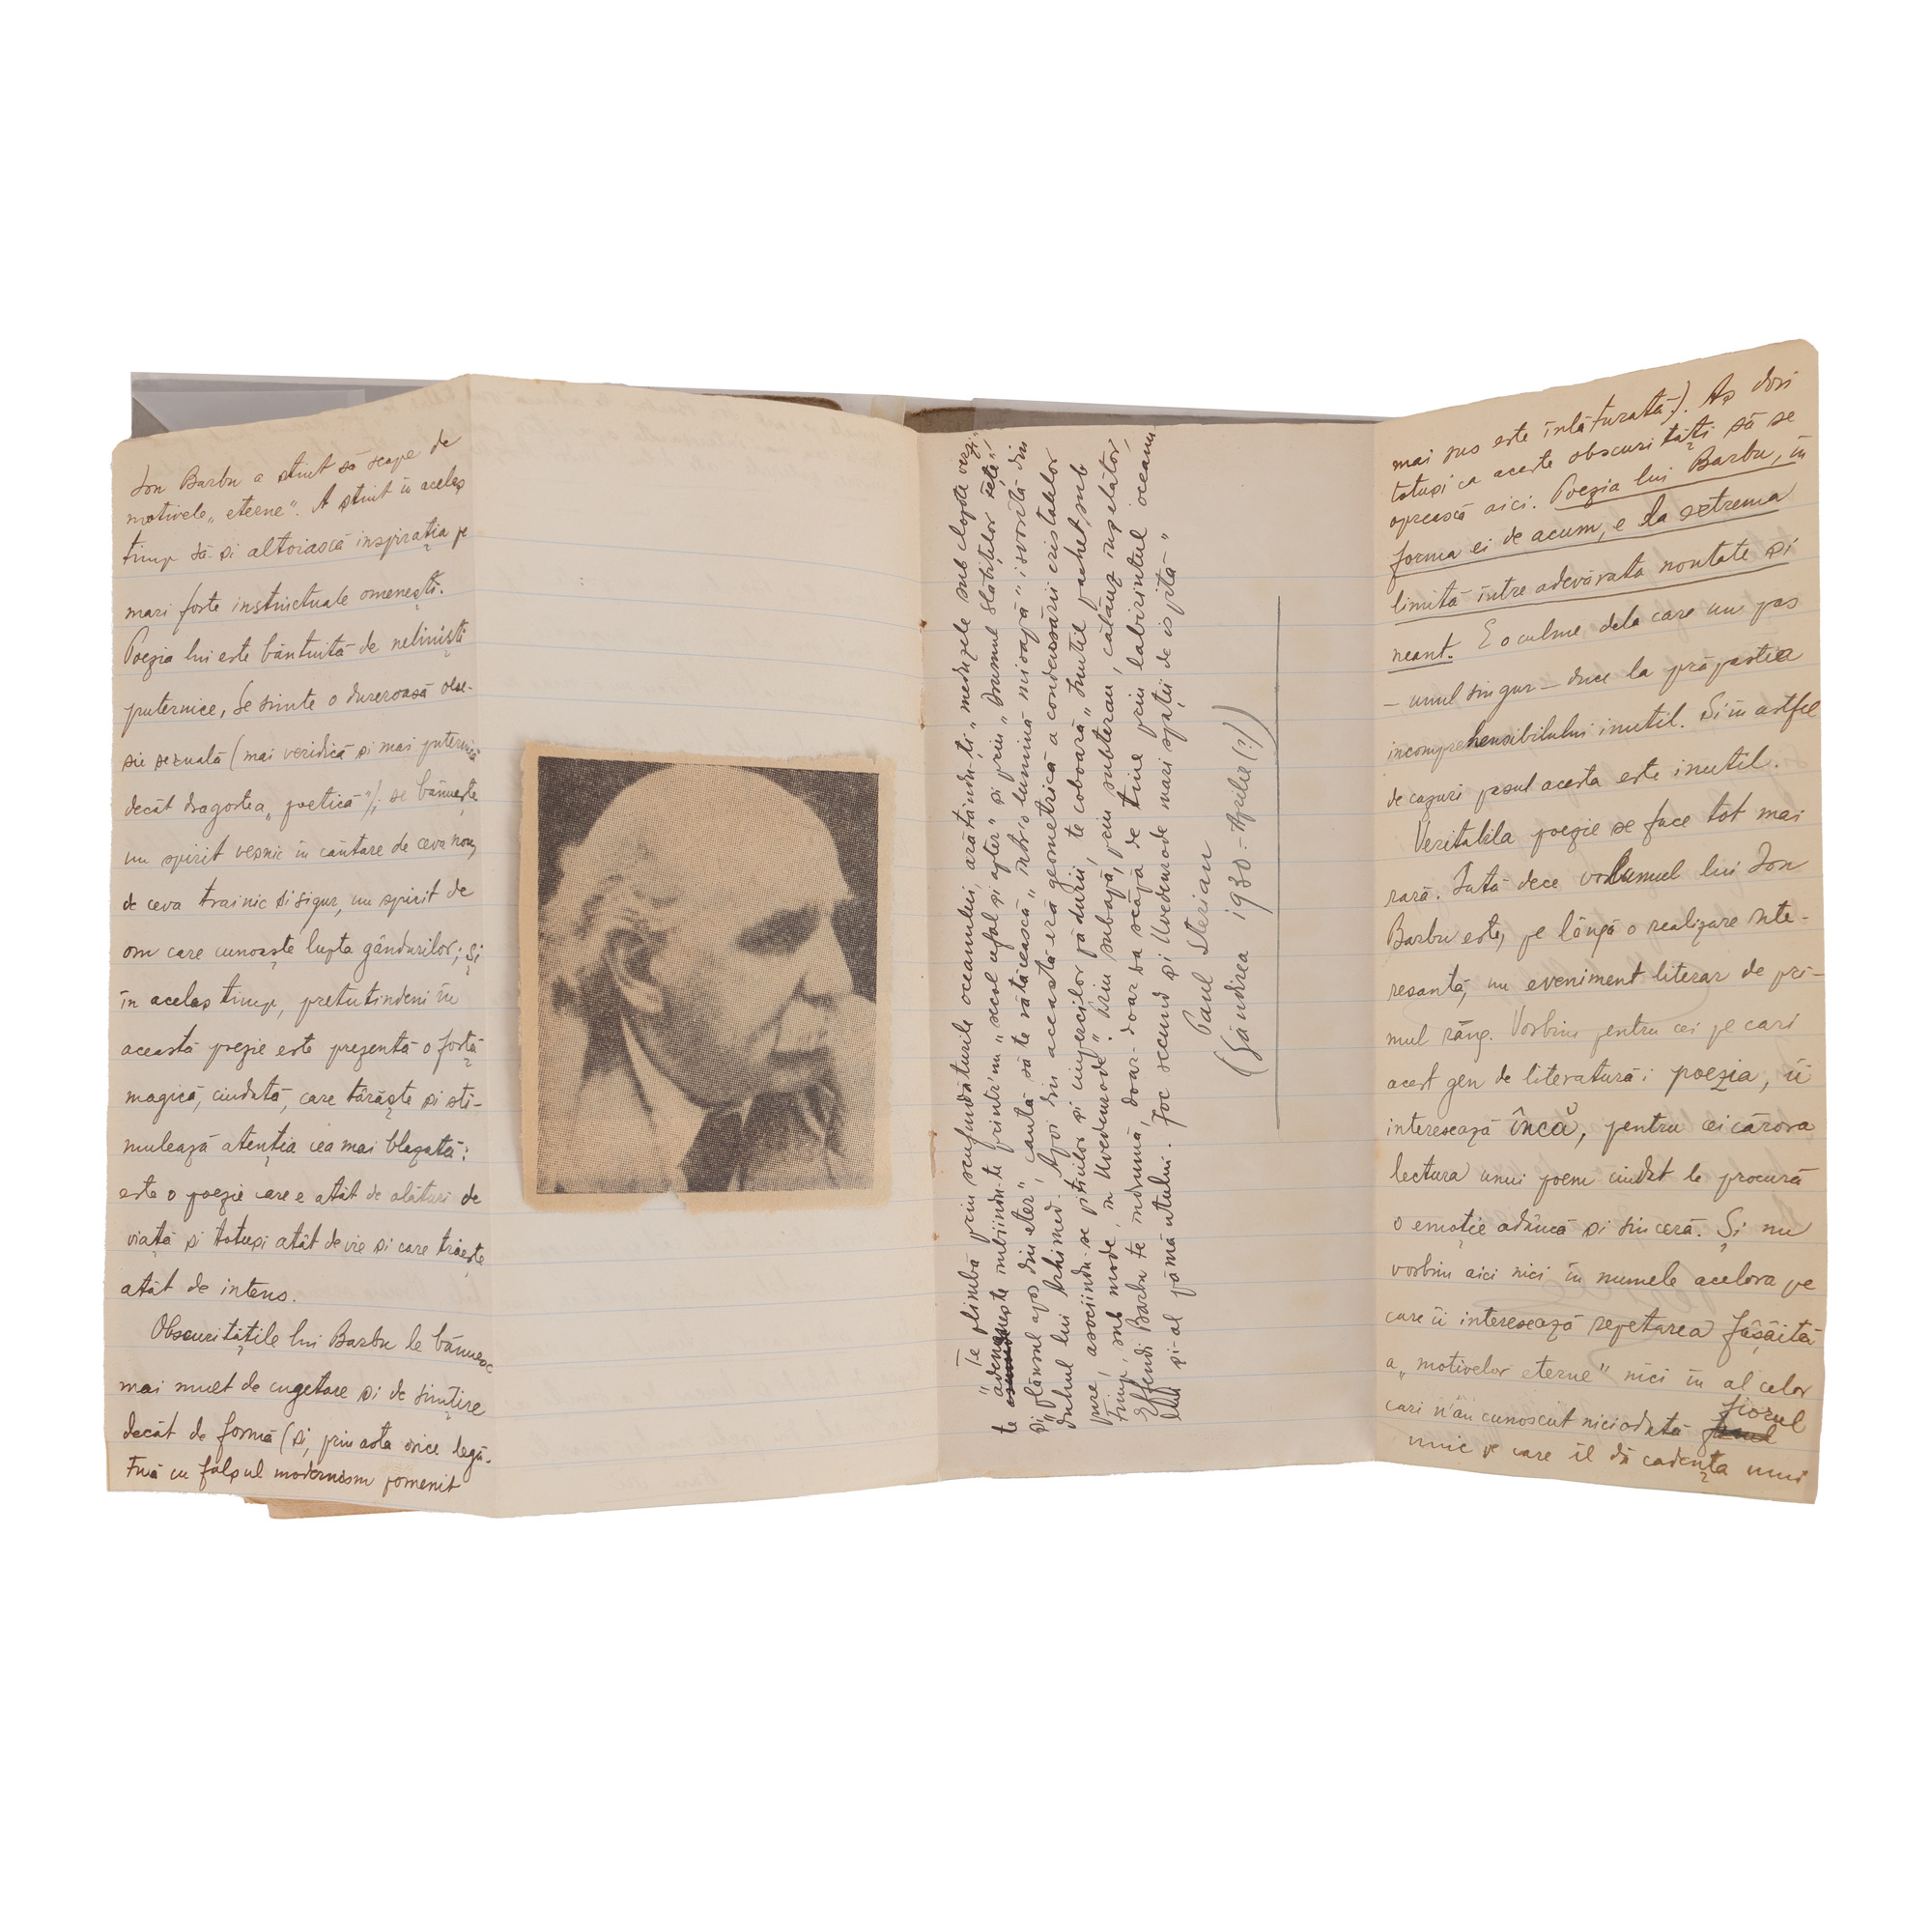 Ion Barbu a știut să scape de
motivele „eterne". A știut în acelaș
timp să-și altoiască inspirația pe
mari forțe instinctuale omenești.
Poezia lui este bântuită de neliniști
puternice, Se simte o dureroasă obse-
sie sexuală (mai veridică și mai puternică
decât dragostea „poetică"); se bănuește
un spirit veșnic în căutare de ceva nou,
de ceva trainic și sigur, un spirit de
om care cunoaște lupta gândurilor; și
în acelaș timp, pretutindeni în
această poezie este prezentă o forță
magică, ciudată, care târăște și sti-
mulează atenția cea mai blazată:
este o poezie care e atât de alături de
viață și totuși atât de vie și care trăește
atât de intens.
Obscuritățile lui Barbu le bănuesc
mai mult de cugetare și de simțire
decât de formă (și, prin asta orice legă-
tură cu falșul modernism pomenit
"Te plimbă prin scufundăturile oceanului, arătându-ți „meduzele sub clopte verzi",
te ademenește îmbiindu-te printr'un „ascol ufal și apter" și prin „Drumul slăbiților sete",
și „plânsul apos din eter", caută să te rătăcească „într'o lumină mioapă" isvorîtă din
duhul lui Arhimed. Apoi din această eră geometrică a condensării cristalelor
pure, asociindu-se pitulor și cupercilor pădurii, te coboară „Inutil pachet, sub
timp, sub mode, în Uvedenrode". Prin subapă, prin subteran, călăuz ispititor,
Effendi Barbu te îndrumă, doar-doar va scăpa de tine prin labirintul oceanu-
lui și-al pământului. Joc secund și Uvedenrode mari spații de ispită"
Paul Sterian
(Gândirea 1930 - Aprilie (?))
mai sus este înlăturată). Aș dori
totuși ca aceste obscurități să se
oprească aici. Poezia lui Barbu, în
forma ei de acum, e la extrema
limită între adevărata noutate și
neant. E o culme dela care un pas
- unul singur - duce la prăpastia
incomprehensibilului inutil. Și în astfel
de cazuri pasul acesta este inutil.
Veritabila poezie se face tot mai
rară. Iată dece volumul lui Ion
Barbu este, pe lângă o realizare inte-
resantă, un eveniment literar de pri-
mul rang. Vorbim pentru cei pe cari
acest gen de literatură: poezia, îi
interesează încă, pentru cei cărora
lectura unui poem ciudat le procură
o emoție adâncă și sinceră. Și nu
vorbim aici nici în numele acelora pe
care îi interesează repetarea fâșâită
a „motivelor eterne" nici în al celor
cari n'au cunoscut niciodată fiorul
unic pe care îl dă cadența unui